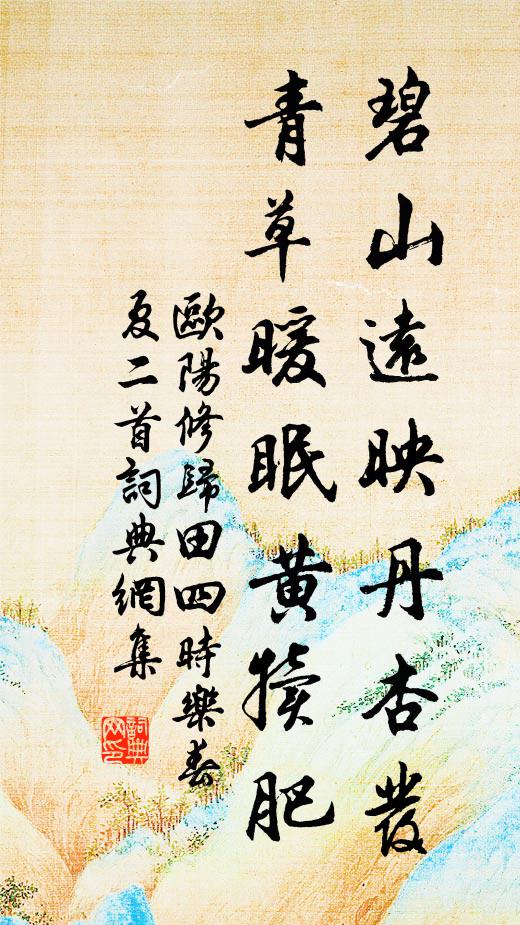 碧山遠映丹杏發
青草暖眠黃犢肥
歐陽修歸田四時樂春
夏二首詞典網集
詞典